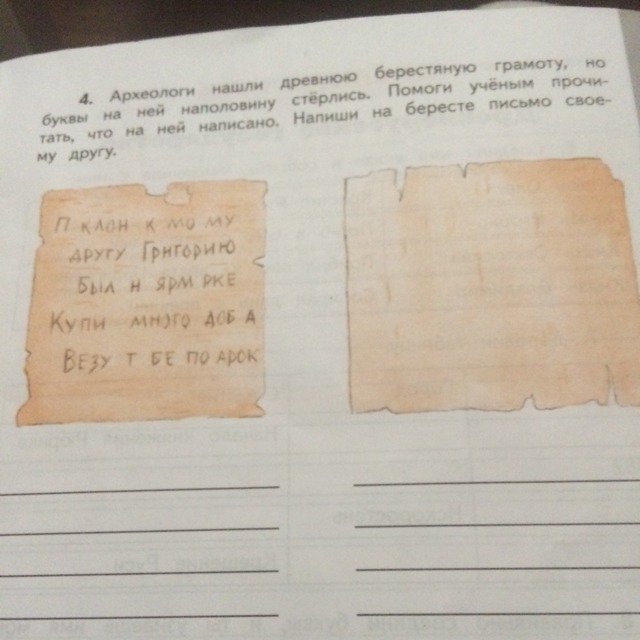 4. Археологи нашли древнюю берестяную грамоту, но
буквы на ней наполовину стёрлись. Помоги учёным прочи-
тать, что на ней написано. Напиши на бересте письмо свое-
му другу.
П КЛОН К МО МУ
ДРУГУ ГРИГОРИЮ
БЫЛ Н ЯРМ РКЕ
КУПИ МНОГО ДОБ А
ВЕЗУ Т БЕ ПО АРОК